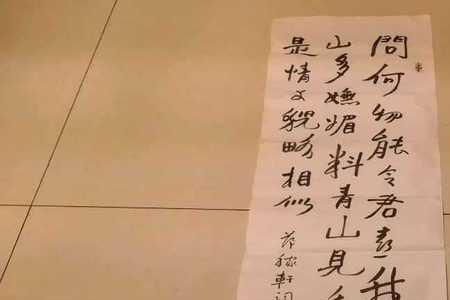 問何物能令君喜我
山多嫵媚料青山見
是情与貌畧相似
节稼軒词